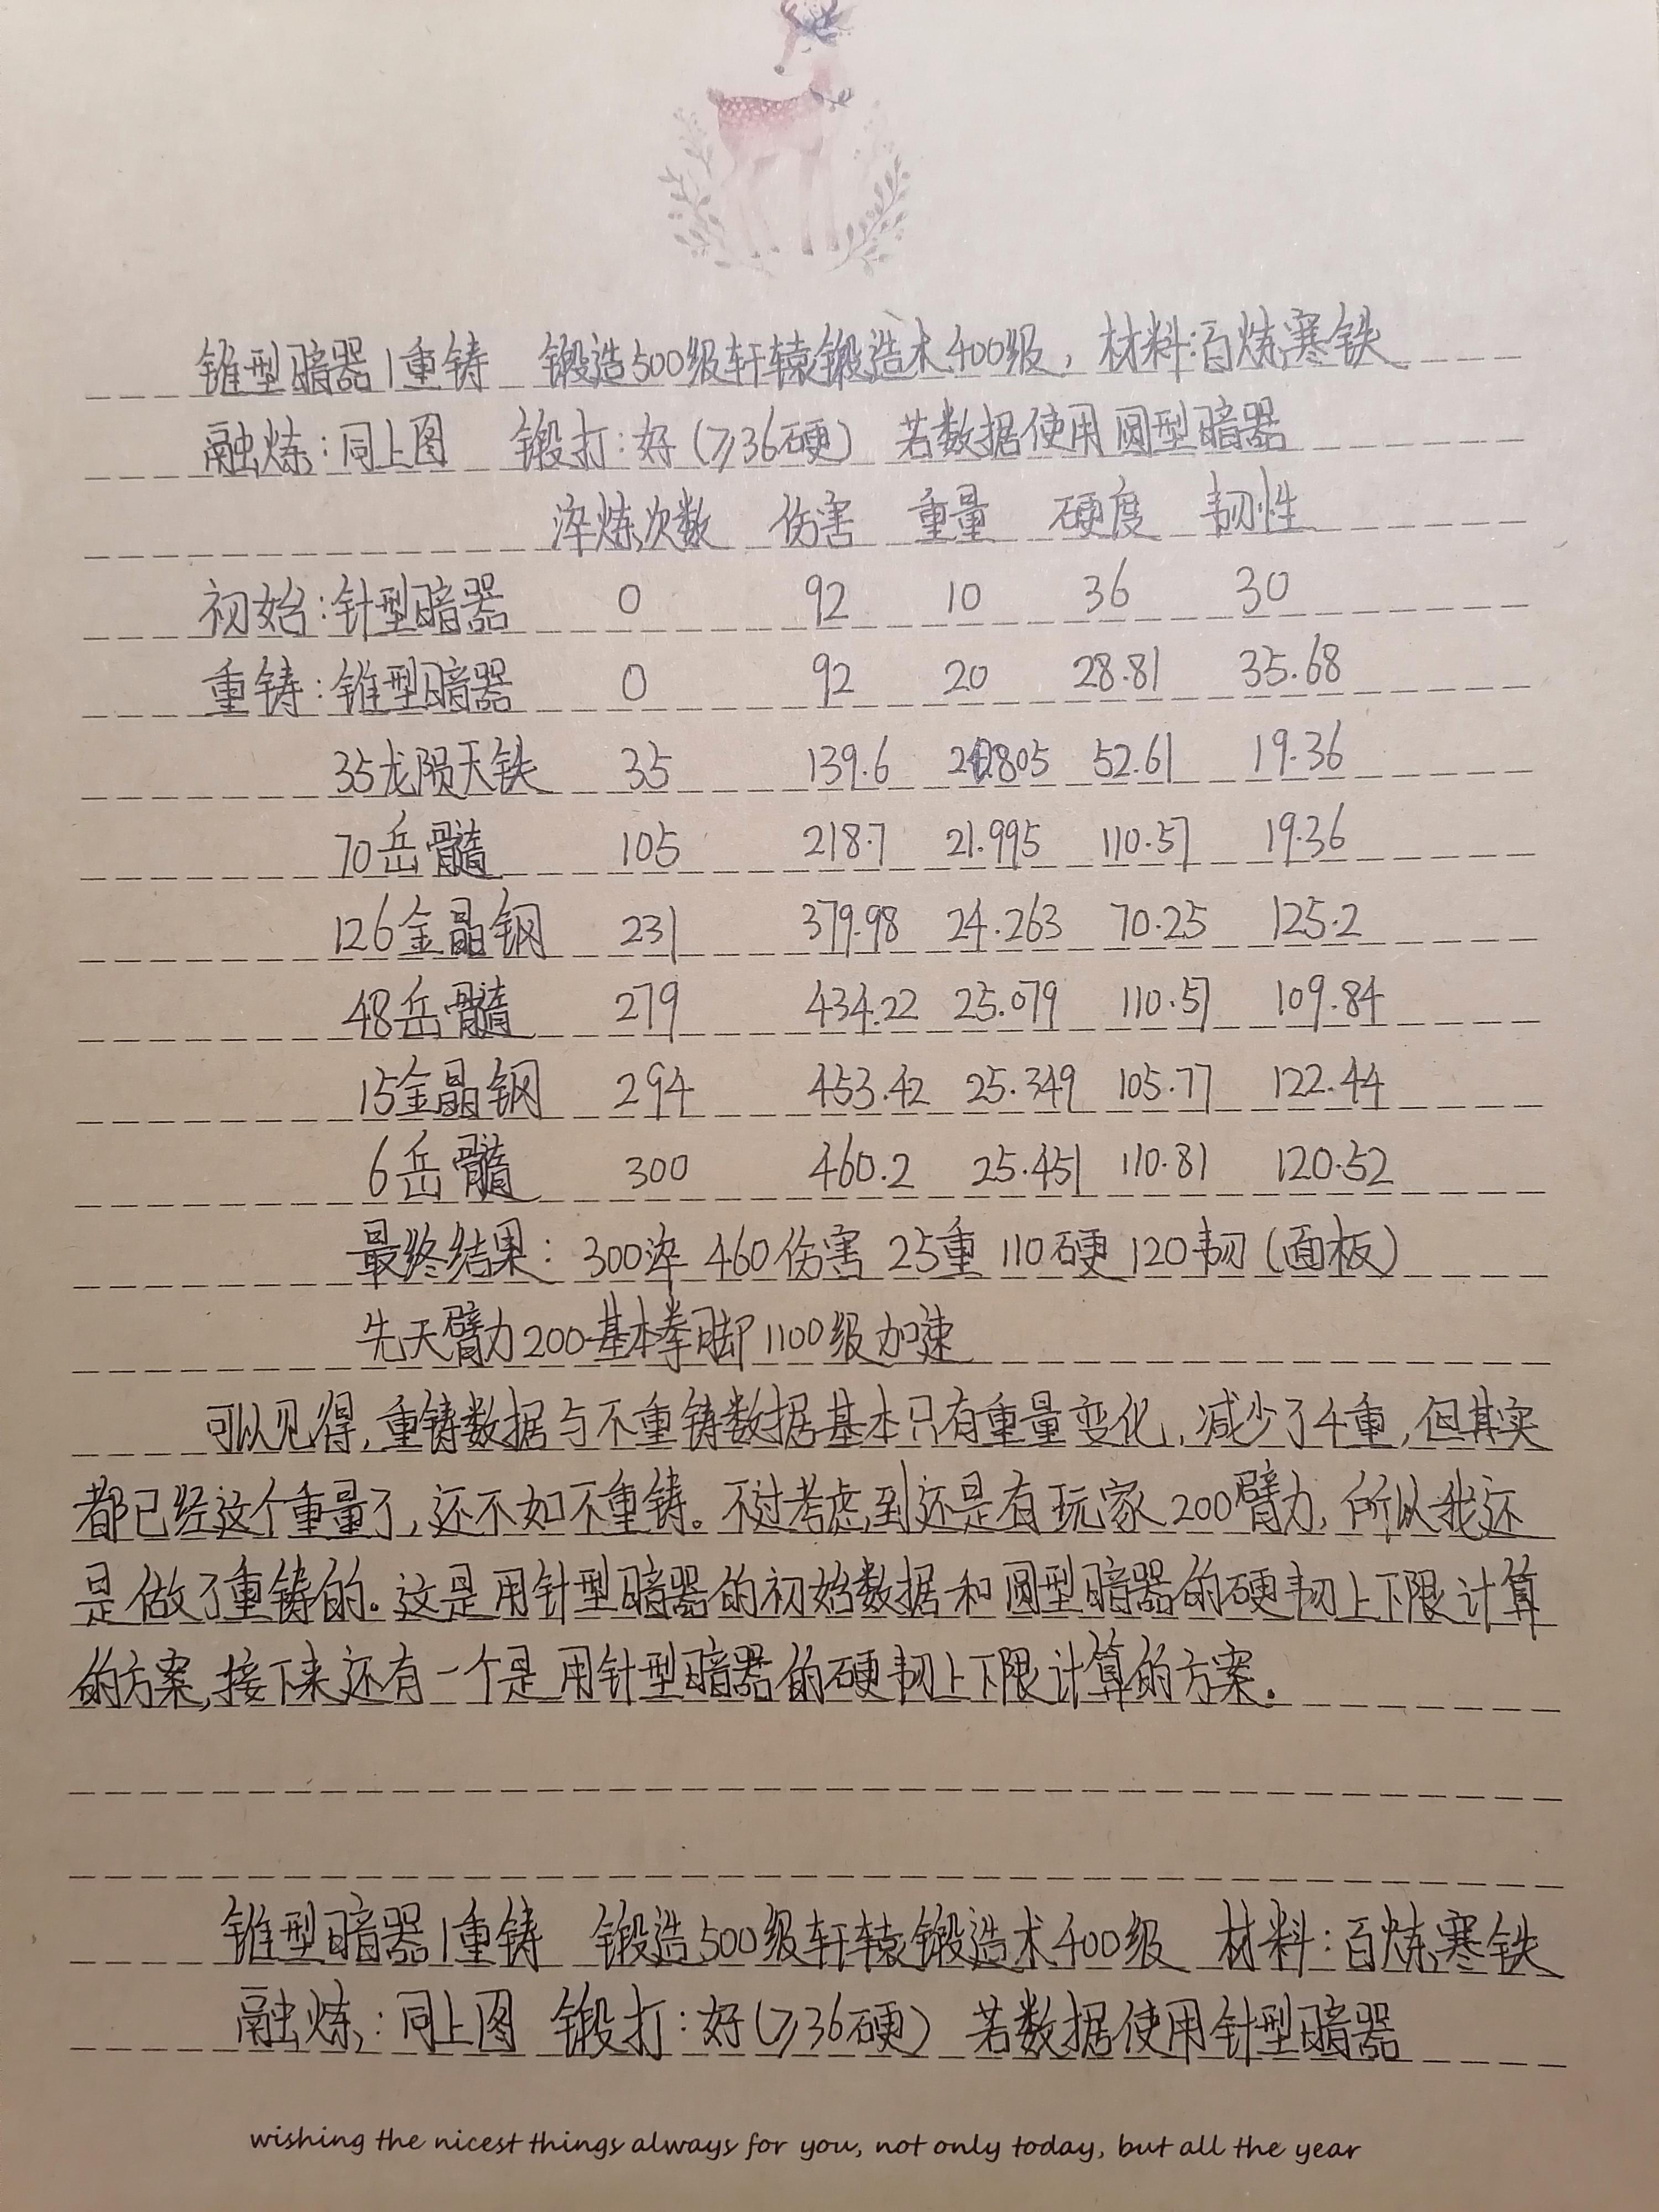 锥型暗器1重铸 锻造500级轩辕锻造术400级，材料:百炼寒铁
融炼:同上图 锻打:好(≥36硬) 若数据使用圆型暗器
淬炼次数 伤害 重量 硬度 韧性
初始:针型暗器 0 92 10 36 30
重铸:锥型暗器 0 92 20 28.81 35.68
35龙陨天铁 35 139.6 20.805 52.61 19.36
70岳髓 105 218.7 21.995 110.57 19.36
126金晶钢 231 379.98 24.263 70.25 125.2
48岳髓 279 434.22 25.079 110.57 109.84
15金晶钢 294 453.42 25.349 105.77 122.44
6岳髓 300 460.2 25.451 110.81 120.52
最终结果: 300淬 460伤害 25重 110硬 120韧(面板)
先天臂力200基本拳脚1100级加速
可以见得,重铸数据与不重铸数据基本只有重量变化,减少了4重,但其实
都已经这个重量了,还不如不重铸。不过考虑到还是有玩家200臂力,所以我还
是做了重铸的。这是用针型暗器的初始数据和圆型暗器的硬韧上下限计算
的方案,接下来还有一个是用针型暗器的硬韧上下限计算的方案。
锥型暗器1重铸 锻造500级轩辕锻造术400级 材料:百炼寒铁
融炼:同上图 锻打:好(≥36硬) 若数据使用针型暗器
wishing the nicest things always for you, not only today, but all the year